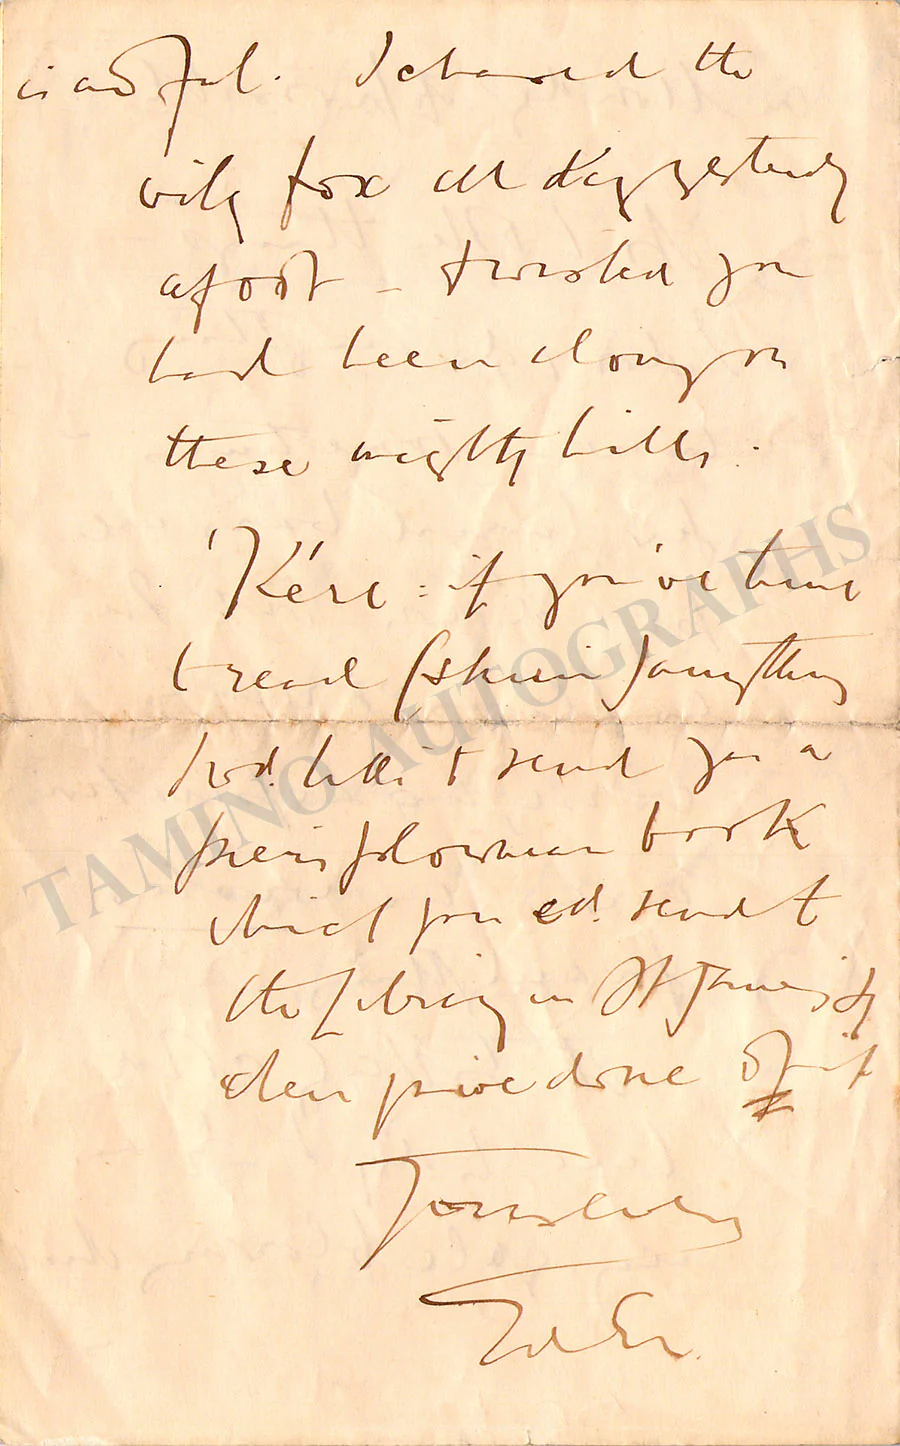 is awful. I chased the
wily fox all day yesterday
afoot – I wished you
had been along on
these mighty hills.
'K'ere: if you've time
to read (skim) anything
I wd. like to send you a
Piers Plowman book
which you cd. send to
the Library in St James's Sq
when you've done of it
Yours
Ed. Er.
TAMINO AUTOGRAPHS